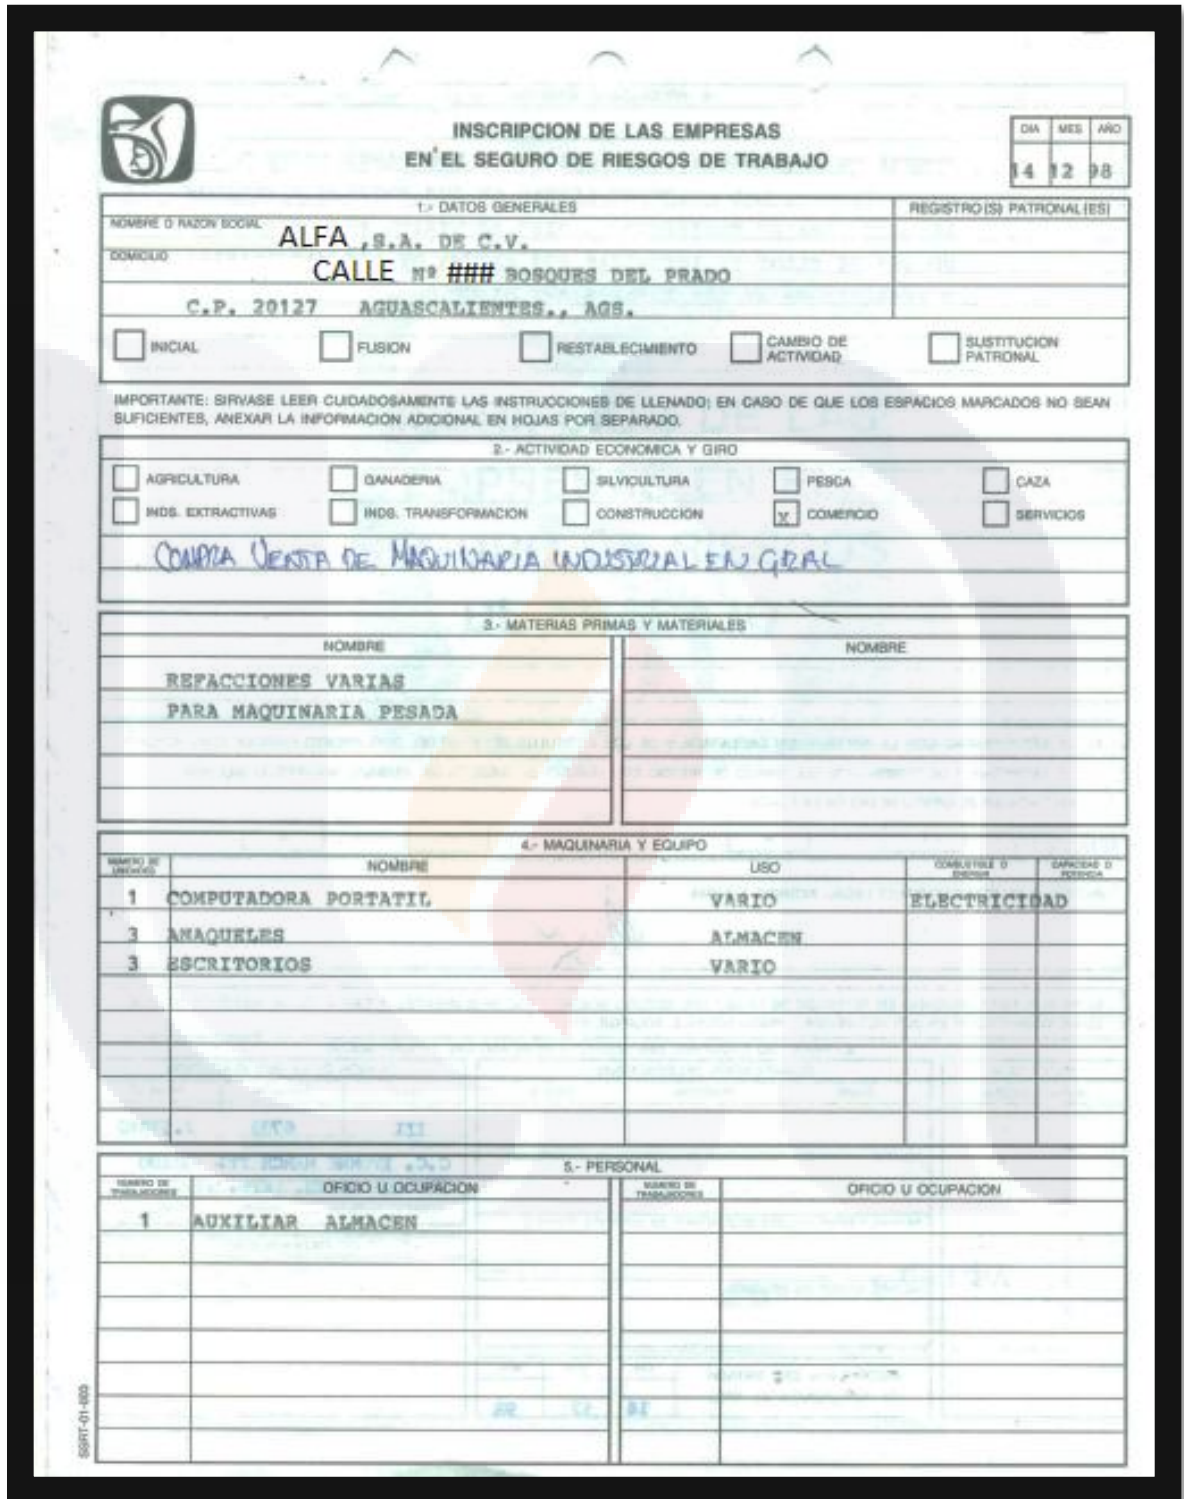 INSCRIPCION DE LAS EMPRESAS
EN EL SEGURO DE RIESGOS DE TRABAJO
DIA MES AÑO
14 12 98
1.- DATOS GENERALES
REGISTRO(S) PATRONAL(ES)
NOMBRE O RAZON SOCIAL
ALFA ,S.A. DE C.V.
DOMICILIO
CALLE Nº ### BOSQUES DEL PRADO
C.P. 20127 AGUASCALIENTES., AGS.
INICIAL FUSION RESTABLECIMIENTO CAMBIO DE ACTIVIDAD SUSTITUCION PATRONAL
IMPORTANTE: SIRVASE LEER CUIDADOSAMENTE LAS INSTRUCCIONES DE LLENADO; EN CASO DE QUE LOS ESPACIOS MARCADOS NO SEAN
SUFICIENTES, ANEXAR LA INFORMACION ADICIONAL EN HOJAS POR SEPARADO.
2.- ACTIVIDAD ECONOMICA Y GIRO
AGRICULTURA GANADERIA SILVICULTURA PESCA CAZA
INDS. EXTRACTIVAS INDS. TRANSFORMACION CONSTRUCCION X COMERCIO SERVICIOS
COMPRA VENTA DE MAQUINARIA INDUSTRIAL EN GRAL
3.- MATERIAS PRIMAS Y MATERIALES
NOMBRE NOMBRE
REFACCIONES VARIAS
PARA MAQUINARIA PESADA
4.- MAQUINARIA Y EQUIPO
NUMERO DE UNIDADES NOMBRE USO COMBUSTIBLE O ENERGIA CAPACIDAD O POTENCIA
1 COMPUTADORA PORTATIL VARIO ELECTRICIDAD
3 ANAQUELES ALMACEN
3 ESCRITORIOS VARIO
5.- PERSONAL
NUMERO DE TRABAJADORES OFICIO U OCUPACION NUMERO DE TRABAJADORES OFICIO U OCUPACION
1 AUXILIAR ALMACEN
SSRT-01-003